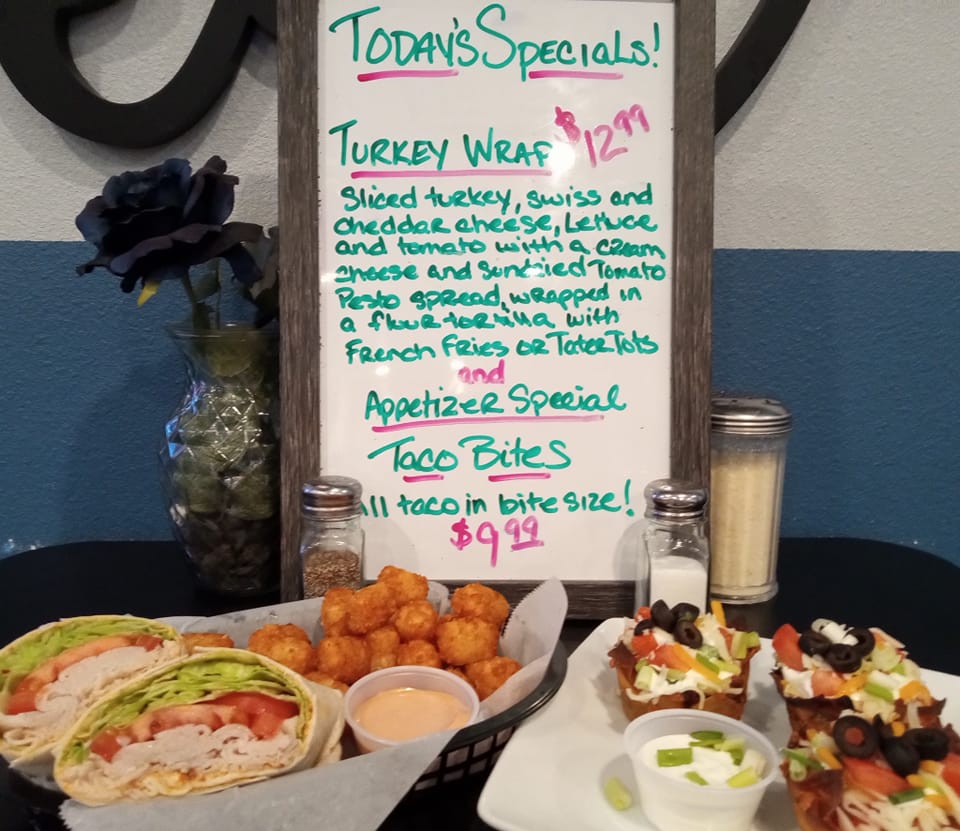 TODAY'S SPECIALS!
TURKEY WRAP $12.99
Sliced turkey, swiss and
cheddar cheese, Lettuce
and tomato with a cream
cheese and sundried Tomato
Pesto spread, wrapped in
a flour tortilla with
French Fries or Tater Tots
and
Appetizer Special
Taco Bites
All taco in bite size!
$9.99